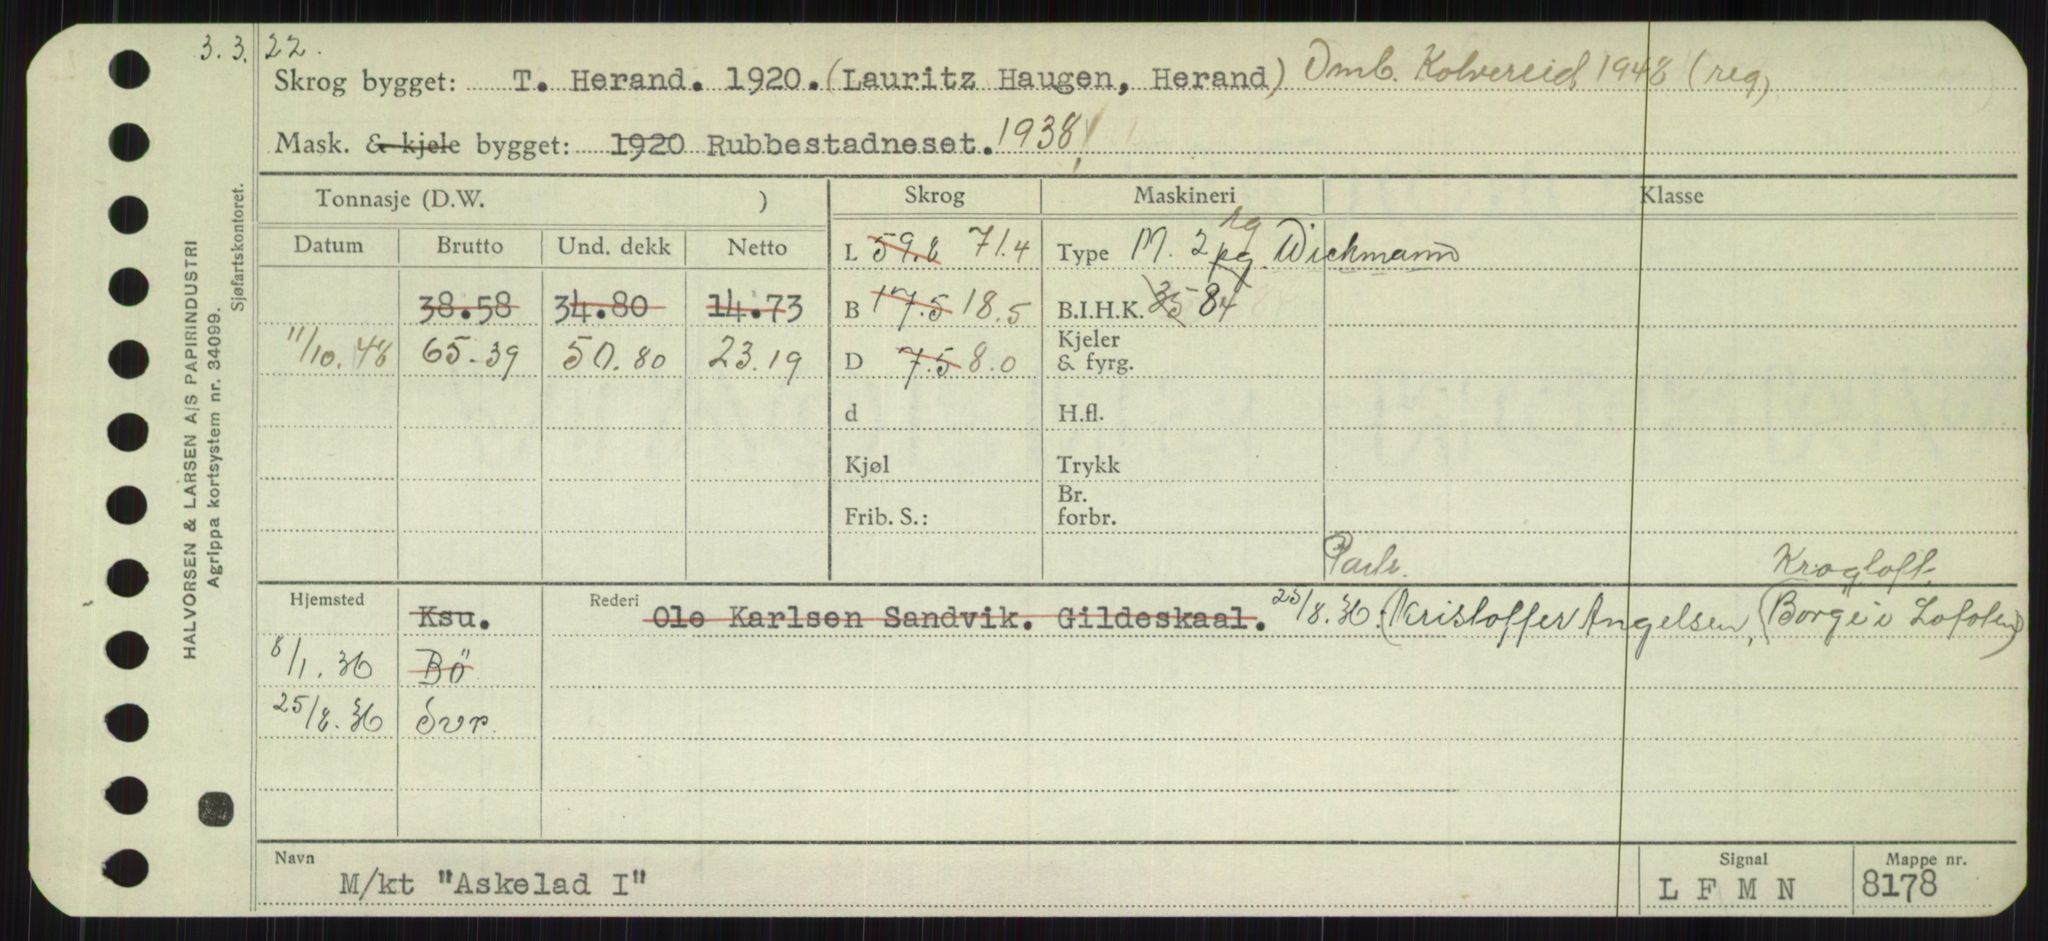 3. 3. 22.
Skrog bygget: T. Herand. 1920. (Lauritz Haugen, Herand) Omb. Kolvereid 1948 (reg)
Mask. & kjele bygget: 1920 Rubbestadneset. 1938
Tonnasje (D.W. ) Skrog Maskineri Klasse
Datum Brutto Und. dekk Netto L 59.8 71.4 Type M. 2 pg rg Wichmann
38.58 34.80 14.73 B 17.5 18.5 B.I.H.K. 35 84
Kjeler
11/10.48 65.39 50.80 23.19 D 7.5 8.0 & fyrg.
d H.fl.
Kjøl Trykk
Br.
Frib. S.: forbr.
Partr. Krogtoft.
Hjemsted Ksu. Rederi Ole Karlsen Sandvik. Gildeskaal. 25/8.36. (Kristoffer Angelsen, (Borge i Lofoten)
8/1.36 Bö
25/8.36 Svr.
Navn Signal Mappe nr.
M/kt "Askelad I" L F M N 8178
HALVORSEN & LARSEN A/S PAPIRINDUSTRI
Agrippa kortsystem nr. 34099.
Sjøfartskontoret.